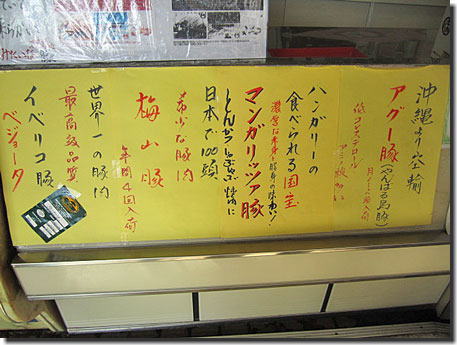 沖縄より空輸
アグー豚(やんばる島豚)
低コレステロール
アミノ酸多い
ハンガリーの
食べられる国宝
濃厚な赤身と脂身の味わい!
マンガリッツァ豚
とんかつ しゃぶしゃぶ 焼肉に
日本で100頭
希少な豚肉
梅山豚
年間4回入荷
世界一の豚肉
最高級品質
イベリコ豚
ベジョータ